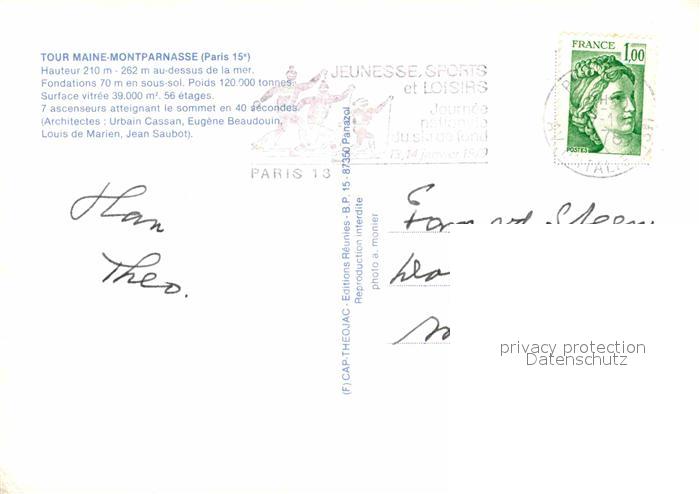 TOUR MAINE-MONTPARNASSE (Paris 15e)
Hauteur 210 m - 262 m au-dessus de la mer.
Fondations 70 m en sous-sol. Poids 120.000 tonnes.
Surface vitrée 39.000 m². 56 étages.
7 ascenseurs atteignant le sommet en 40 secondes.
(Architectes : Urbain Cassan, Eugène Beaudouin,
Louis de Marien, Jean Saubot).
JEUNESSE, SPORTS
et LOISIRS
Journée
nationale
du ski de fond
13, 14 janvier 1979
PARIS 13
FRANCE 1,00
POSTES
Han
Theo.
(F) CAP-THEOJAC - Editions Réunies - B.P. 15 - 87350 Panazol
Reproduction interdite
photo a. monier
privacy protection
Datenschutz